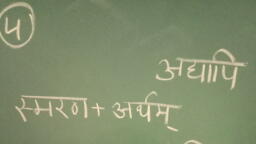 ५
अद्यापि
स्मरण + अर्थम्